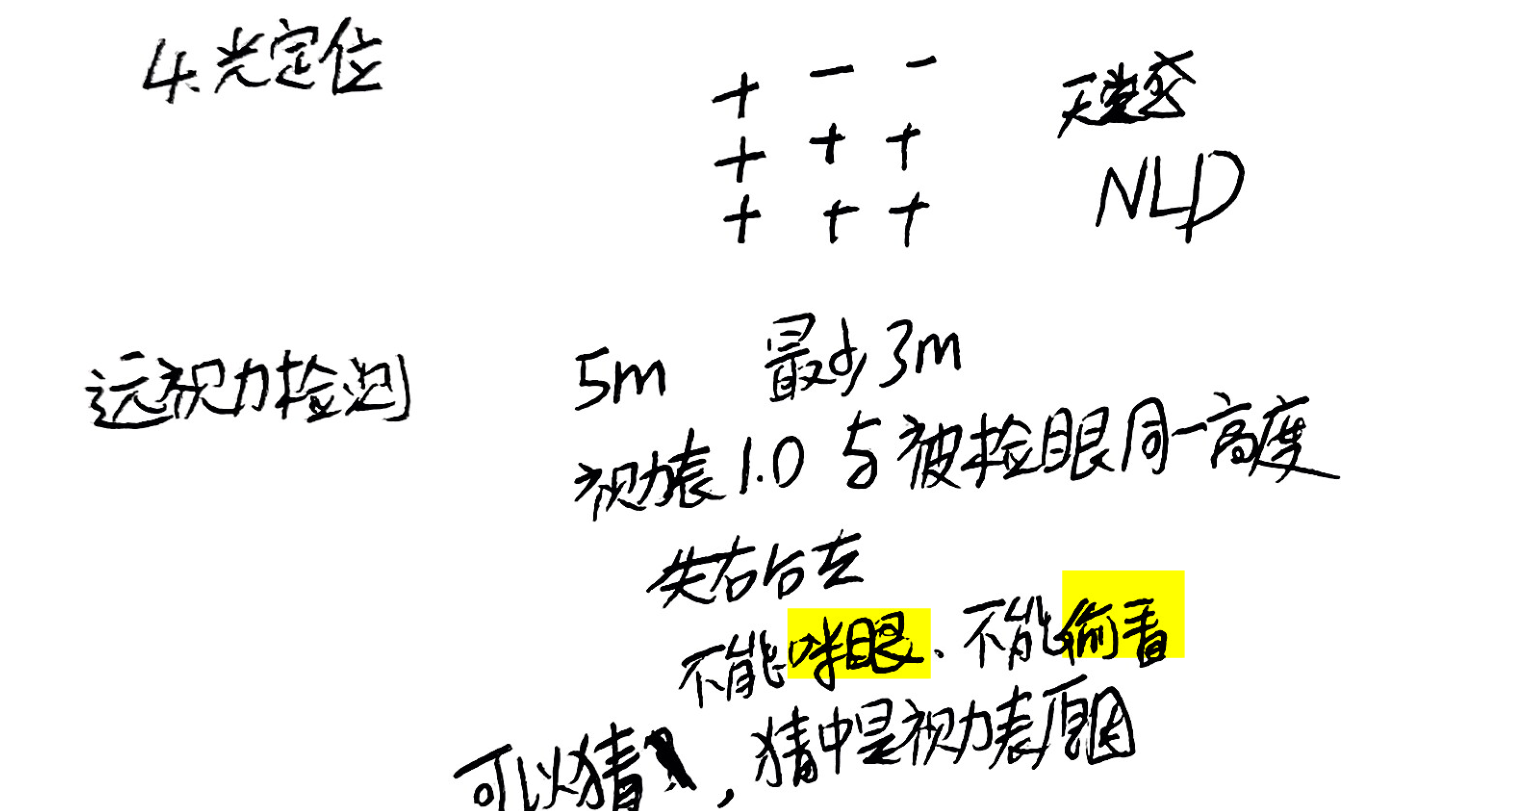 4.光定位
+ − −
+ + +
+ + +
NLD
远视力检测 5m 最少3m
视力表1.0与被检眼同一高度
先右后左
不能咪眼、不能偷看
可以猜，猜中是视力表原因